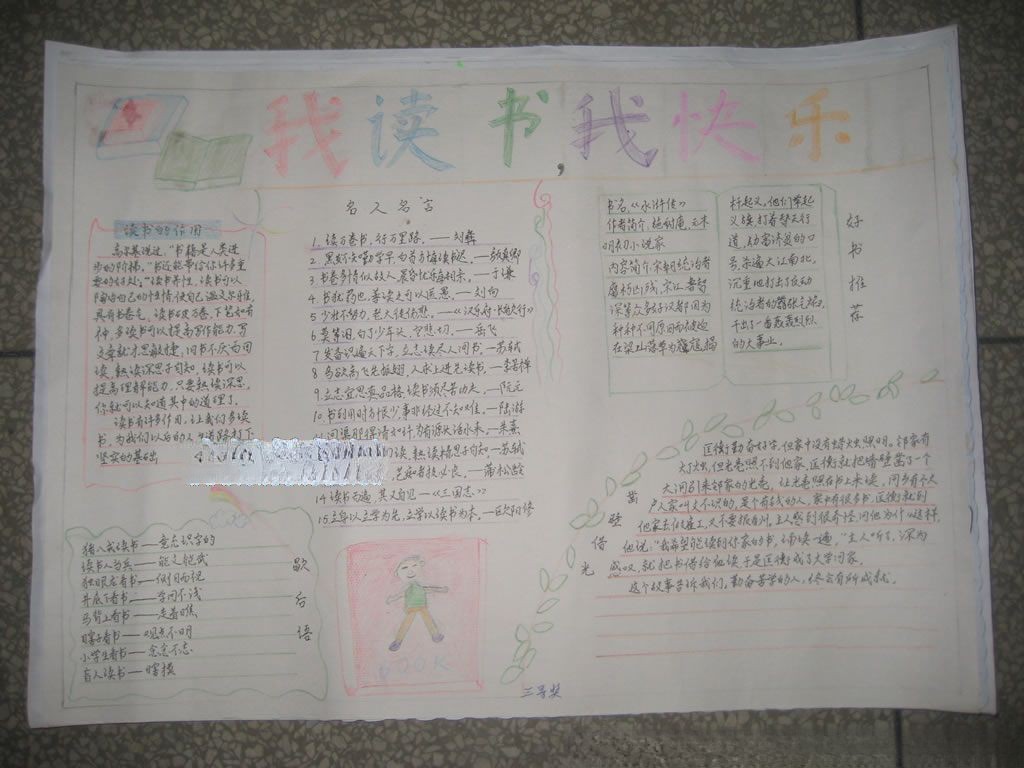 我读书,我快乐
读书的作用
高尔基说过,"书籍是人类进
步的阶梯。"书还能带给你许多重
要的好处。"读书养性,读书可以
陶冶自己的性情,使自己温文尔雅,
具有书卷气,读书破万卷,下笔如有
神,多读书可以提高写作能力,写
文章就才思敏捷,旧书不厌百回
读,熟读深思子自知,读书可以
提高理解能力,只要熟读深思,
你就可以知道其中的道理了。
读书有许多作用,让我们多读
书,为我们以后的人生道路打下
坚实的基础
名人名言
1.读万卷书,行万里路。——刘彝
2.黑发不知勤学早,白首方悔读书迟。——颜真卿
3.书卷多情似故人,晨昏忧乐每相亲。——于谦
4.书犹药也,善读之可以医愚。——刘向
5.少壮不努力,老大徒伤悲。——《汉乐府·长歌行》
6.莫等闲,白了少年头,空悲切。——岳飞
7.发奋识遍天下字,立志读尽人间书。——苏轼
8.鸟欲高飞先振翅,人求上进先读书。——李若禅
9.立志宜思真品格,读书须尽苦功夫。——阮元
10.书到用时方恨少,事非经过不知难。——陆游
问渠那得清如许,为有源头活水来。——朱熹
读,熟读精思子自知——苏轼
艺知者技必良。——蒲松龄
14.读书百遍,其义自见——《三国志》
15.立身以立学为先,立学以读书为本。——欧阳修
书名:《水浒传》
作者简介:施耐庵,元末
明初小说家
内容简介:宋朝统治者
腐朽凶残,宋江、鲁智
深等众多好汉都因为
种种不同原因而被迫
在梁山落草为寇,揭
杆起义,他们举起
义旗,打着替天行
道,劫富济贫的口
号,杀遍大江南北,
沉重地打击了反动
统治者的嚣张气焰,
干出了一番轰轰烈烈
的大事业。
好书推荐
凿壁借光
匡衡勤奋好学,但家中没有蜡烛照明。邻家有
灯烛,但光亮照不到他家,匡衡就把墙壁凿了一个
大洞引来邻家的光亮,让光亮照在书上来读。同乡有个大
户人家叫文不识的,是个有钱的人,家中有很多书,匡衡就到
他家去做雇工,又不要报酬,主人感到很奇怪,问他为什么这样,
他说:"我希望能读到你家的书,通读一遍。"主人听了,深为
感叹,就把书借给他读,于是匡衡成了大学问家。
这个故事告诉我们,勤奋苦学的人,终会有所成就。
猪八戒读书——意充识字的
读书人当兵——能文能武
独眼龙看书——
井底下看书——学问不浅
马背上看书——走着瞧
瞎子看书——观点不明
小学生看书——念念不忘
盲人读书——瞎摸
歇后语
BOOK
三等奖